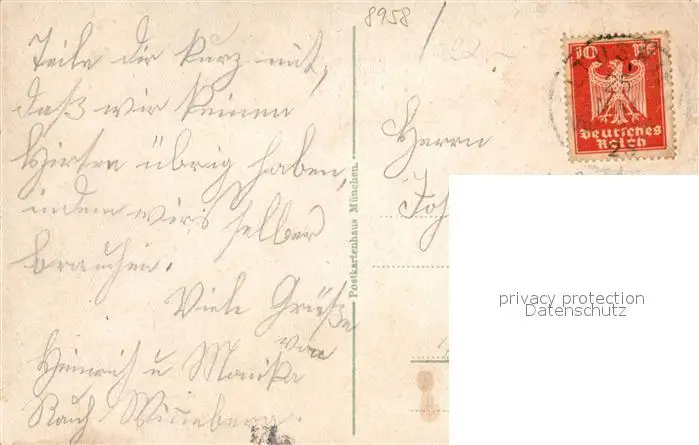 8958
Teile dir kurz mit,
daß wir keinen
Hirten übrig haben,
indem wirs selber
brauchen.
Viele Grüße
von
Heinrich u Monika
Rauch
Postkartenhaus München.
Herrn
Joh
10 Pf
Deutsches
Reich
privacy protection
Datenschutz